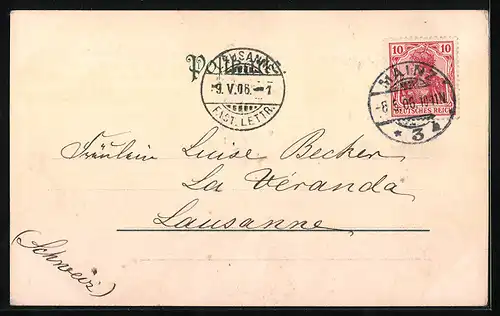 LAUSANNE
9.V.06.–1
EXP. LETTR.
10 10
DEUTSCHES REICH
MAINZ
* 3
Fräulein Luise Becker
La Véranda
Lausanne
(Schweiz)